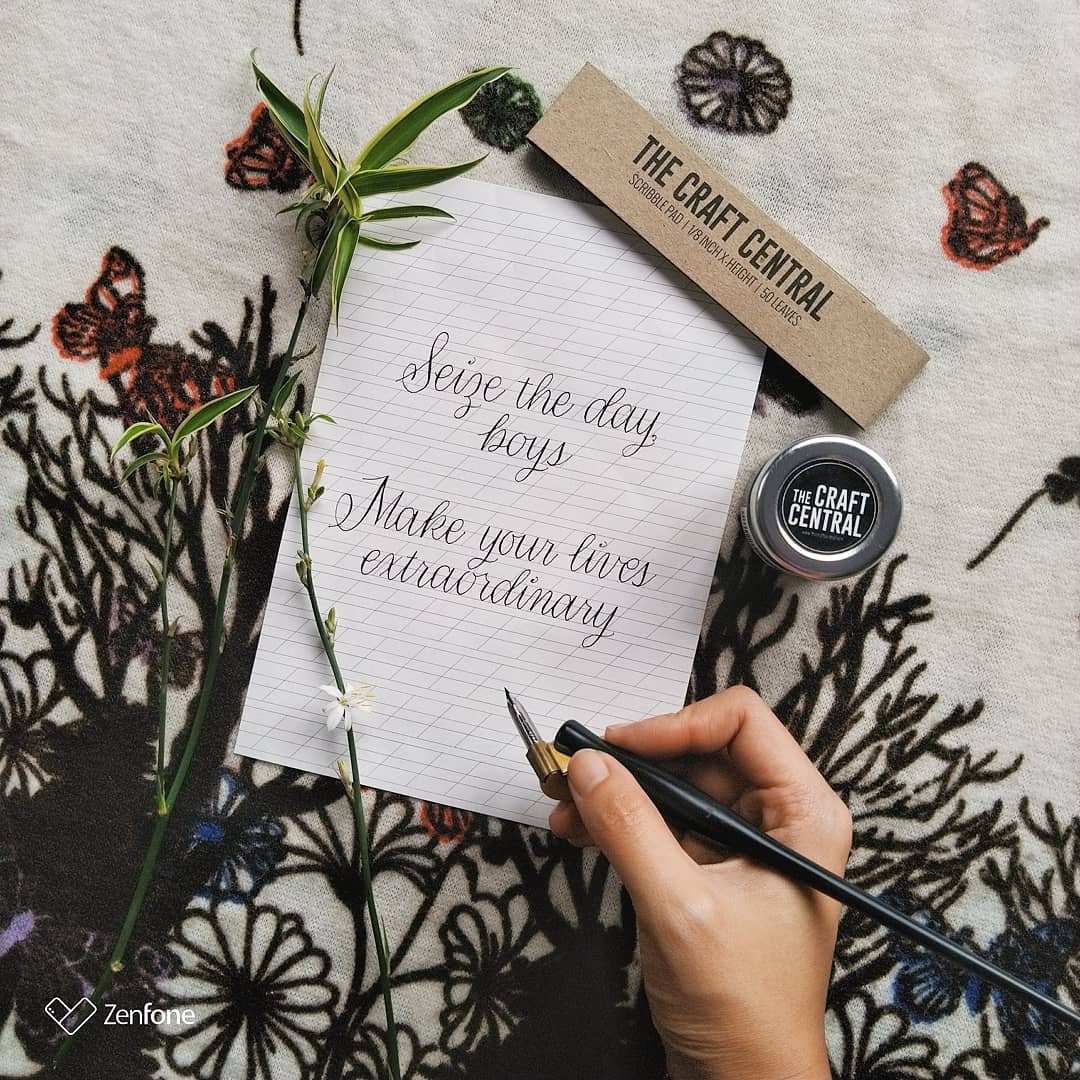 THE CRAFT CENTRAL
SCRIBBLE PAD | 1/8 INCH X-HEIGHT | 50 LEAVES
Seize the day,
boys
Make your lives
extraordinary
THE CRAFT
CENTRAL
Zenfone